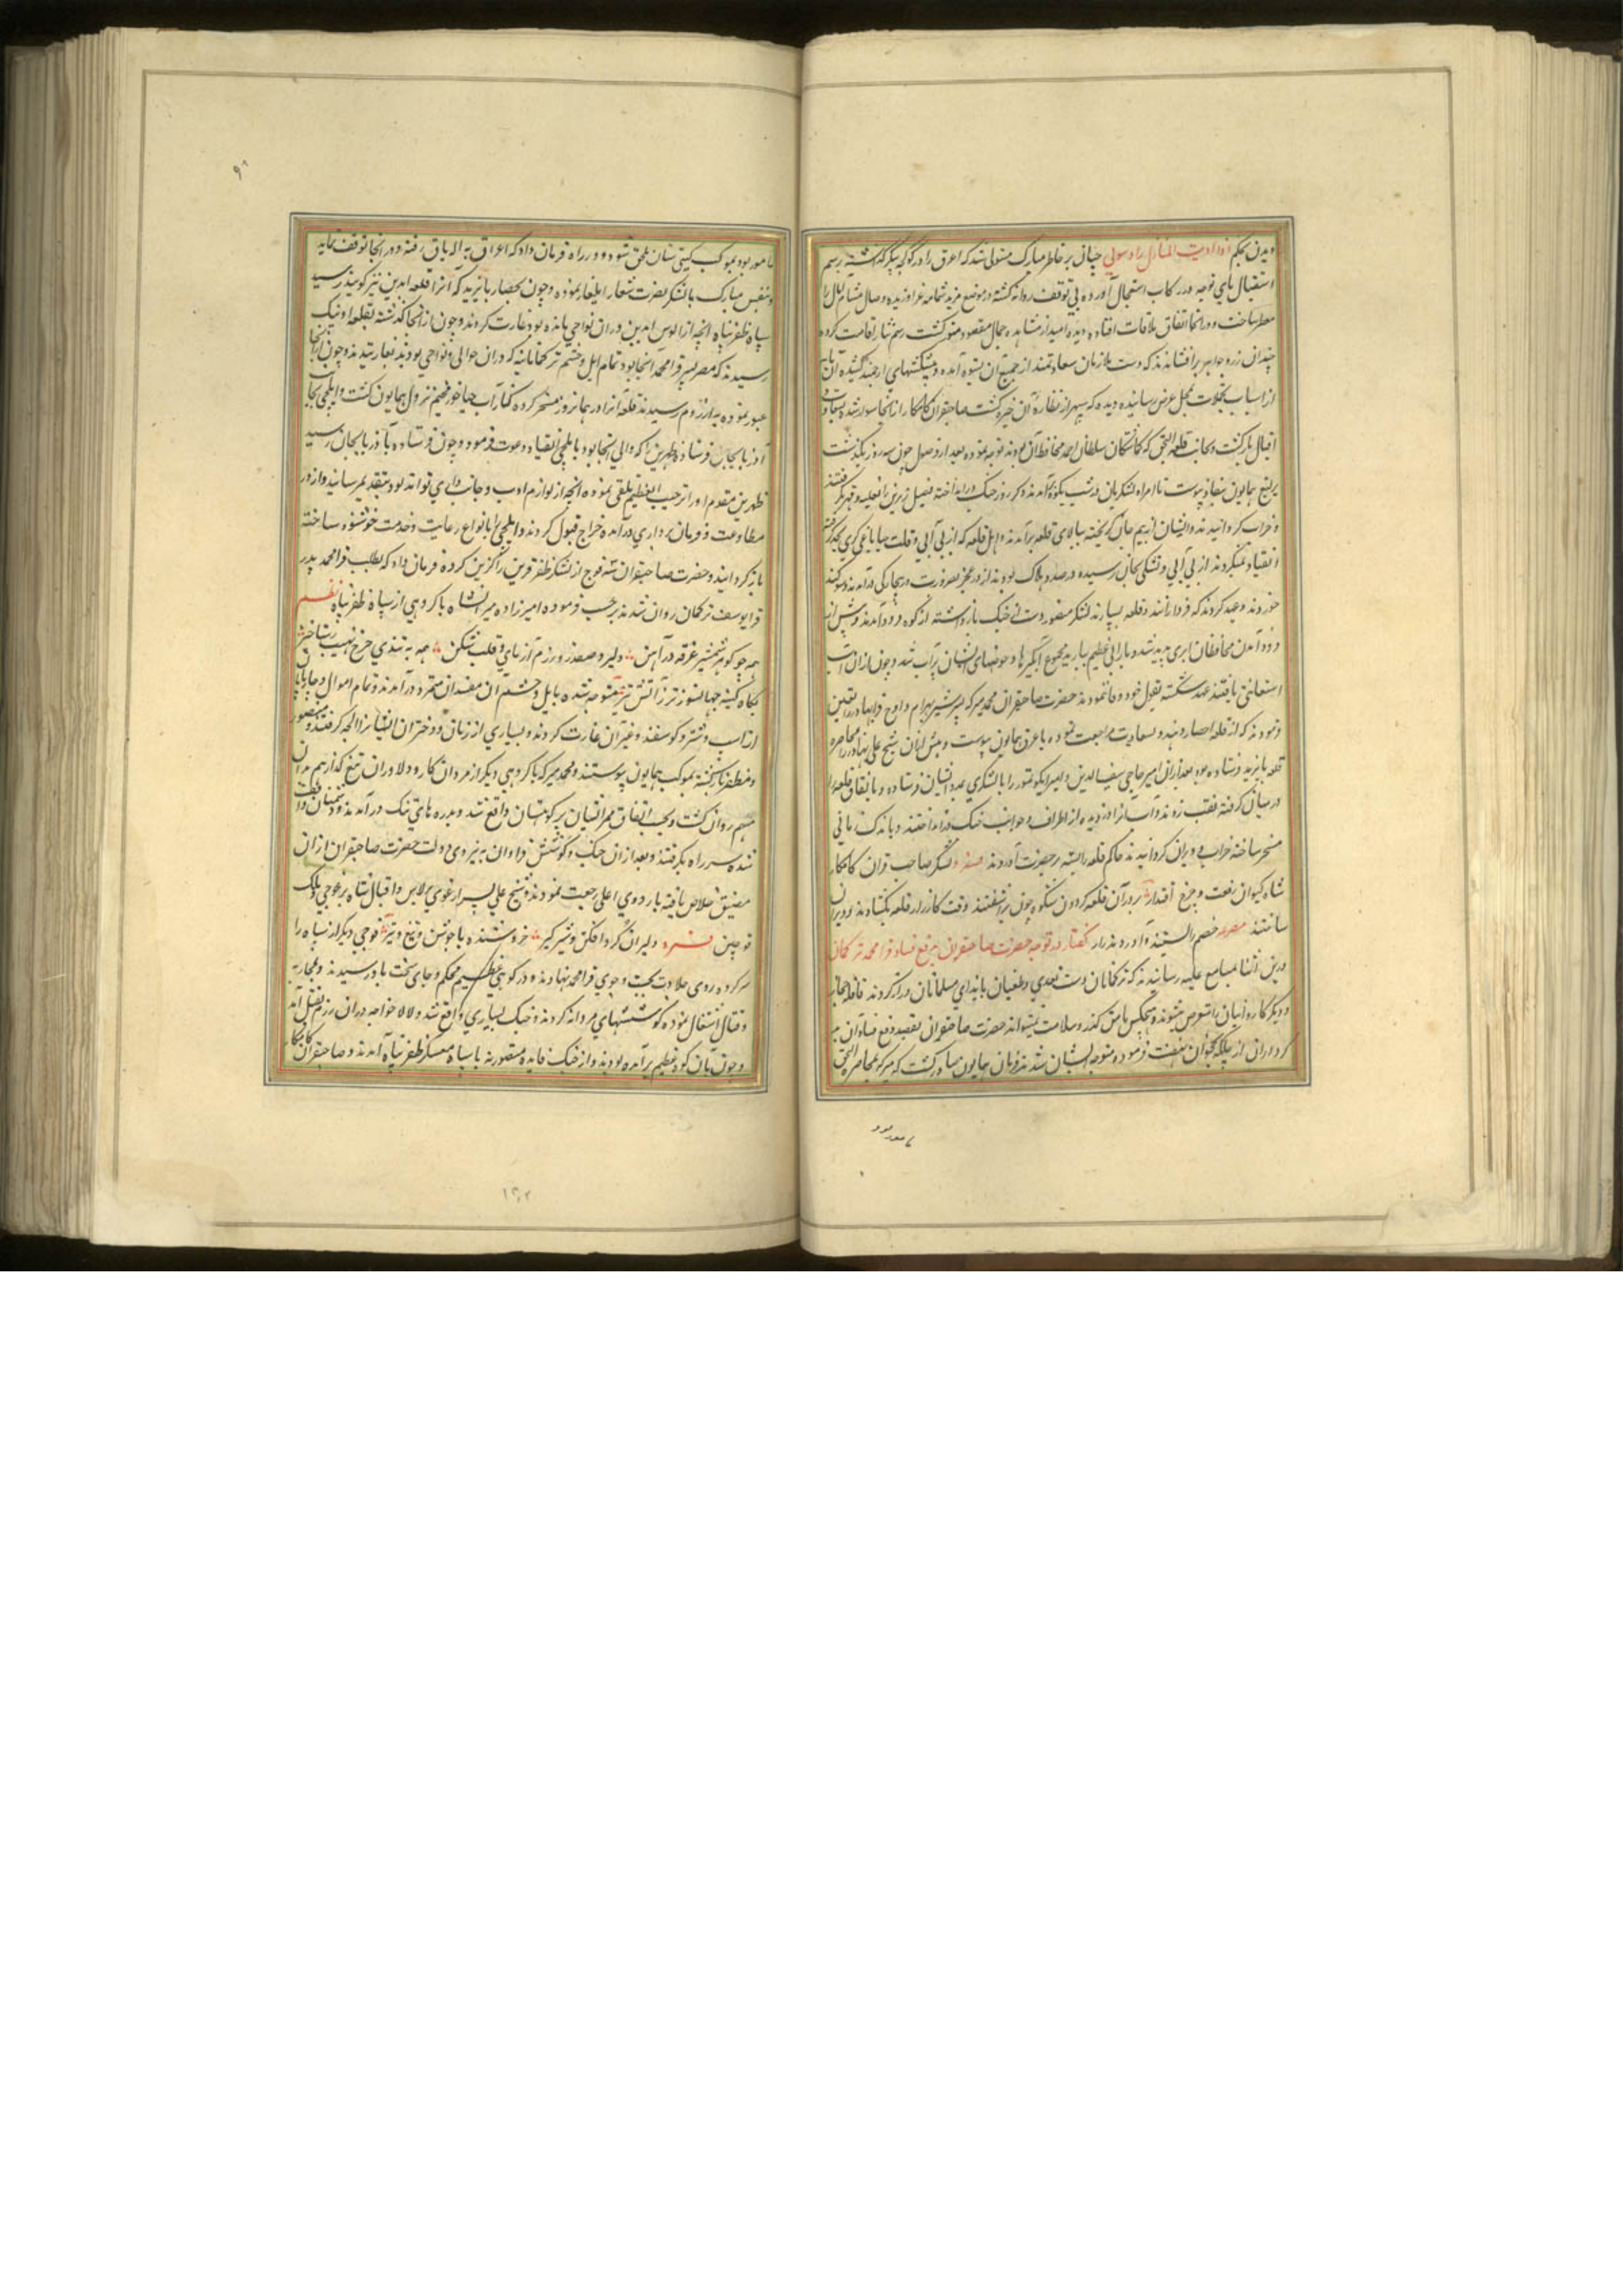 و بدن بحکم اذا دنت المنازل زاد شوقی چنان بر خاطر مبارک مستولی شد که اعرق را در کوکچه تنکیز گذاشته برسم
استقبال پای توجه در رکاب استعجال آورده بی توقف روانه کشته در موضع مشام آمال را
معطر ساخت و در انجا اتفاق ملاقات افتاده دیده امید از مشاهده جمال مقصود منور کشت رسم نثار اقامت کرده
چندان زر و جواهر برافشاندند که دست ملازمان سعادتمند از جمع آن بستوه آمده و پیشکشهای ارجمند کشیده آن
از اسباب تجملات بمحل عرض رسانیده دیده که سپهر از نظاره آن خیره کشت صاحبقران کامکار از انجا سوار شده بسعادت
اقبال بازکشت و بجانب قلعه النجق که کماشتکان سلطان احمد محافظ آن بودند توجه نموده بعد از وصول چون سه روز بگذشت
یرلیغ همایون بنفاذ پیوست تا امراء لشکریان در شب بکوه برآمدند و کر روز جنک در انداخته فصیل زیرین را بغلبه و قهر بگرفتند
و خراب کردانیدند و ایشان از بیم جان کریخته ببالای قلعه برآمدند و اهل قلعه که از بی آبی و قلت
انقیاد نمیکردند از بی آبی و تشنکی بجان رسیده در صدد هلاک بودند از در عجز بضرورت و بیچارکی درآمدند و سوکند
خوردند و عهد کردند که فردا برآنند و قلعه بسپارند لشکر منصور دست از جنک بازداشته از کوه فرود آمدند و پیش از
فرود آمدن محافظان ابری پدید شد و بارانی عظیم بارید مجموع آبگیرها و حوضهای ایشان پر آب شد و چون از آن آب
استعانتی یافتند عهد شکسته بقول خود وفا ننمودند حضرت صاحبقران محمد میرکه پسر شیر بهرام و اوج قرا بهادر را تعیین
فرمود که از قلعه احصار دهند و بسعادت مراجعت نموده باغرق همایون پیوست و پیش ازان شیخ علی بهادر را محاصره
قلعه بایزید فرستاده بود بعد ازان امیر حاجی سیف الدین و امیر ایکو تمور را با لشکری بمدد ایشان فرستاده و باتفاق قلعه را
در میان کرفته نقب زدند و آب از از دیده از اطراف و جوانب جنک در انداختند و باندک زمانی
مسخر ساخته خراب و ویران کردانیدند حاکم قلعه را بسته بحضرت آوردند لشکر صاحب قران کامکار
شاه کیوان رفعت و چرخ اقتدار بر در آن قلعه کردون شکوه چون برآشفتند وقت کارزار قلعه بکشادند و ویران
ساختند مصرع خصم را بستند و آوردند زار گفتار در توجه حضرت صاحبقران بدفع فساد قرا محمد ترکمان
درین اثنا بمسامع علیه رسانیدند که ترکمانان دست تعدی و طغیان بایذای مسلمانان دراز کردند قافله حجاز
و دیکر کاروانیان را متعرض میشوند و هیچکس بامن کذر و سلامت نمیتواند حضرت صاحبقران بقصد دفع فساد آن
کرداران از ییلاق نخجوان نهضت فرمود و متوجه ایشان شد و فرمان همایون صادر کشت که میرکه بمحاصره النجق
مامور بود
مامور بود بموکب کیتی ستان ملحق شود و در راه فرمان داد که اعراق به اله تاق رفته در انجا توقف نماید
و بنفس مبارک با لشکر نصرت شعار ایلغار نموده و چون بحصار بایزید که آنرا قلعه ایدین نیز کویند رسید
سپاه ظفر پناه انچه از الوس ایدین دران نواحی مانده بود غارت کردند و چون از انجا کذشته بقلعه اونیک
رسیدند که مصر پسر قرا محمد آنجا بود تمام ایل و حشم ترکمانانیه که دران حوالی و نواحی بودند بغارتیدند و چون ازانجا
عبور نموده به ارزروم رسیدند قلعه آنرا در همانروز مسخر کرده کنار آب چپاخور مخیم نزول همایون کشت و ایلچی بجانب
آذربایجان فرستاد و طهرتن را که والی آنجا بود با ایلچی بانقیاد دعوت فرمود و چون فرستاده باذربایجان رسید
طهرتن مقدم او را ترحیب و تعظیم تلقی نموده انچه از لوازم ادب و جانب داری تواند بود بتقدیم رسانید و از در
مطاوعت و فرمان برداری درآمده خراج قبول کردند و ایلچی را بانواع رعایت و خدمت خوشنود ساخته
بازکردانید و حضرت صاحبقران سه فوج از لشکر ظفر قرین را کزین کرده فرمان داد که بطلب قرا محمد پدر
قرا یوسف ترکمان روان شدند بر حسب فرموده امیرزاده میرانشاه با کروهی از سپاه ظفر پناه نظم
همه چو کوهر شمشیر غرقه در آهن دلیر و صفدر و رزم آزمای و قلب شکن همه به تندی چرخ نهیب رستاخیز
بکاه کینه جهانسوز تر ز آتش تیز متوجه شده بایل و حشم آن مفسدان متمرد درآمدند و تمام اموال و چارپایان
از اسب و شتر و کوسفند و غیر آن غارت کردند و بسیاری از زنان و دختران ایشانرا الجه کرفتند و منصور
و مظفر بازکشته بموکب همایون پیوستند و محمد میرکه با کروهی دیکر از مردان کار و دلاوران تیغ کذار هم بدان
مهم روان کشت و بحسب اتفاق ممر ایشان بر کوهستان واقع شد و بدره های تنک درآمدند و دشمنان واقف
شده سر راه بکرفتند و بعد ازان جنک و کوشش فراوان به نیروی دولت حضرت صاحبقران ازان
مضیق خلاص یافته باردوی اعلی رجعت نمودند و شیخ علی پسر ارغوی برلاس و اقبال شاه برغوجی و ملک
قوچین دلیران کرد افکن و شیر کیر خروشنده با جوشن و تیغ و تیر فوجی دیکر از سپاه را
سرکرده روی جلادت بجست و جوی قرا محمد نهادند و در کوهی عظیم محکم و جای سخت بدو رسیدند و بمحاربه
و قتال اشتغال نموده کوششهای مردانه کردند و جنک بسیاری واقع شد و لالا خواجه دران رزم بقتل آمد
و چون بآن کوه عظیم برآمده بودند و از جنک فایده متصور نه با سپاه معسکر ظفر پناه آمدند و صاحبقران کامکار